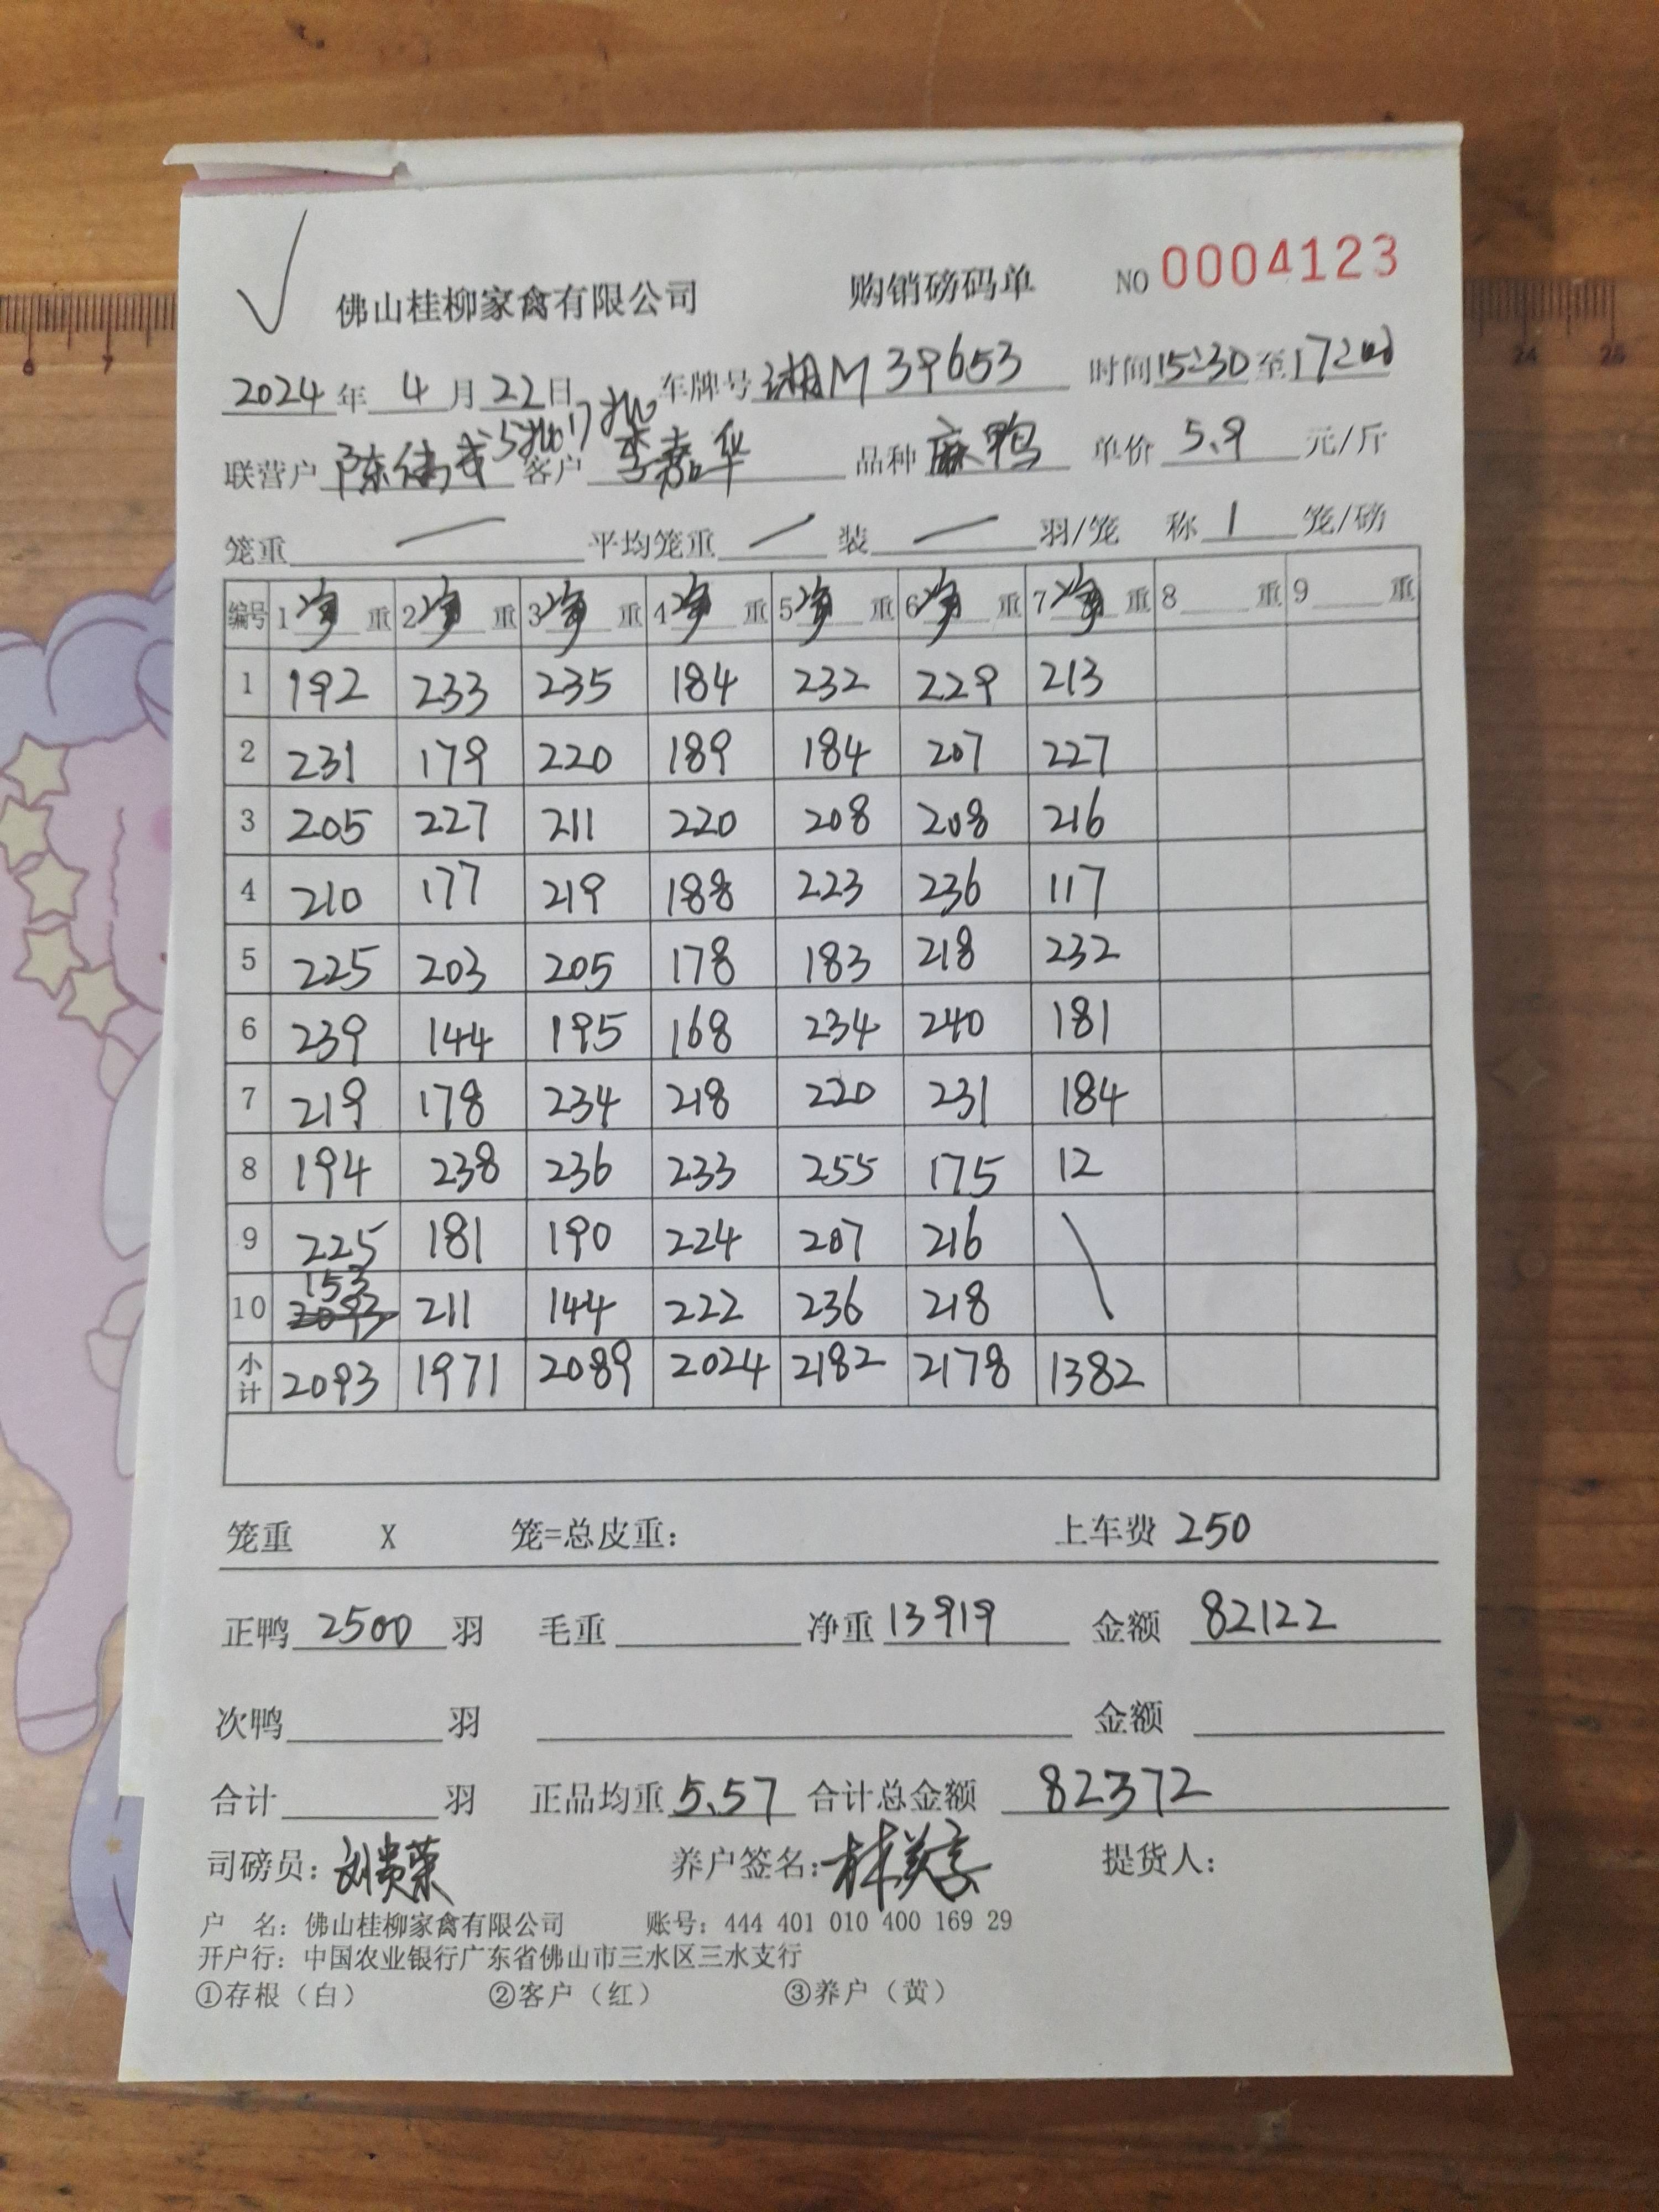 佛山桂柳家禽有限公司 购销磅码单 NO 0004123
2024年 4月22日 车牌号 湘M39653 时间15:30至17:00
5批17批
联营户 陈伟 客户 李嘉华 品种 麻鸭 单价 5.9 元/斤
笼重 一 平均笼重 一 装 一 羽/笼 称 1 笼/磅
编号 1净重 2净重 3净重 4净重 5净重 6净重 7净重 8 重 9 重
1 192 233 235 184 232 229 213
2 231 179 220 189 184 207 227
3 205 227 211 220 208 208 216
4 210 177 219 188 223 236 117
5 225 203 205 178 183 218 232
6 239 144 195 168 234 240 181
7 219 178 234 218 220 231 184
8 194 238 236 233 255 175 12
9 225 181 190 224 207 216
10 153 211 144 222 236 218
小计 2093 1971 2089 2024 2182 2178 1382
笼重 X 笼=总皮重： 上车费 250
正鸭 2500 羽 毛重 净重 13919 金额 82122
次鸭 羽 金额
合计 羽 正品均重 5.57 合计总金额 82372
司磅员：刘贵荣 养户签名：林 提货人：
户 名：佛山桂柳家禽有限公司 账号：444 401 010 400 169 29
开户行：中国农业银行广东省佛山市三水区三水支行
①存根（白） ②客户（红） ③养户（黄）